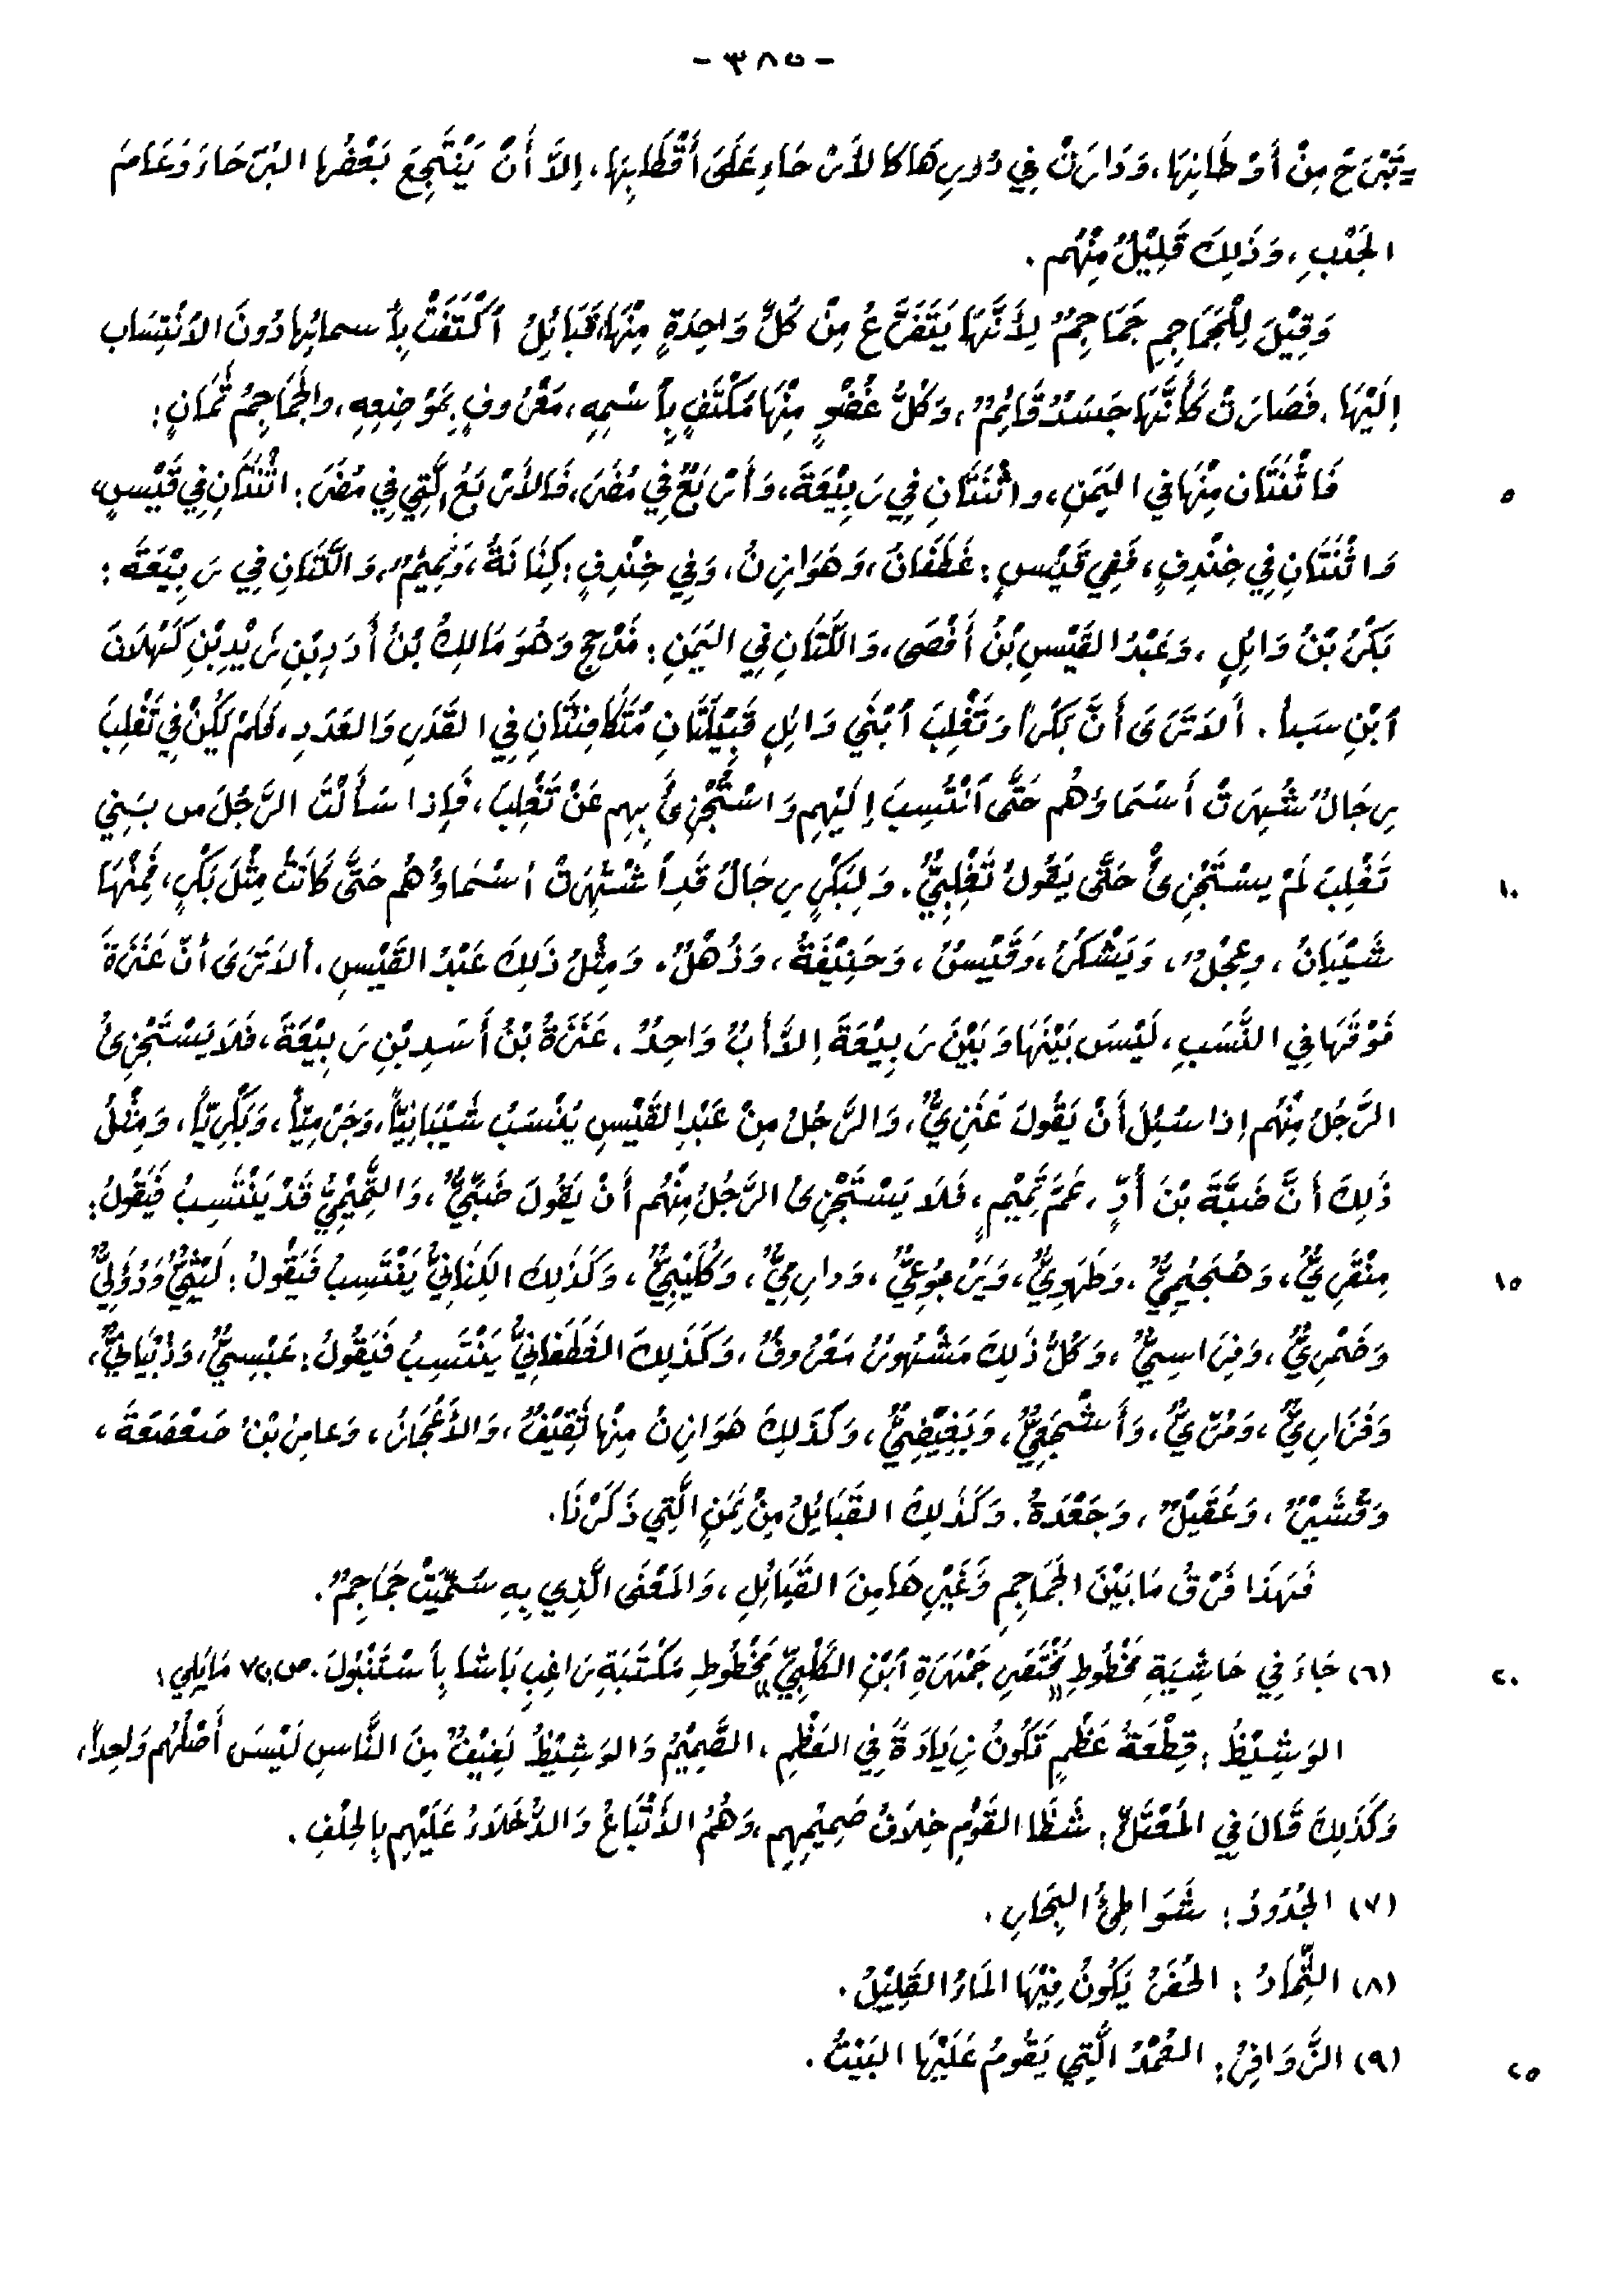 - ٣٨٥ -
= تَبْرَحْ مِنْ أَوْطَانِهَا، وَدَارَتْ فِي دُورِهَا كَالأَرْحَاءِ عَلَى أَقْطَابِهَا، إِلاَّ أَنْ يَنْتَجِعَ بَعْضُها البَرَحَاءَ وَعَامَ
الجَدْبِ، وَذَلِكَ قَلِيْلٌ مِنْهُم.
وَقِيْلَ لِلْجَمَاجِمِ جَمَاجِمٌ لِأَنَّهَا يَتَفَرَّعُ مِنْ كُلِّ وَاحِدَةٍ مِنْهَا قَبَائِلُ ٱكْتَفَتْ بِأَسمائِها دُونَ الاَنْتِسَاب
إِلَيْهَا. فَصَارَتْ كَأَنَّهَا جَسَدٌ قَائِمٌ، وَكُلُّ عُضْوٍ مِنْهَا مُكْتَفٍ بِأَسْمِهِ، مَعْرُوفٍ بِمَوْضِعِهِ، والجَمَاجِمُ ثَمَانٍ:
٥ فَاثْنَتَان مِنْهَا في اليَمَنِ، واثْنَتَانِ فِي رَبِيْعَةَ، وَأَرْبَعٌ فِي مُضَرَ، فَالأَرْبَعُ الَّتِي فِي مُضَرَ: اثْنَتَانِ فِي قَيْسٍ،
وَاثْنَتَانِ فِي خِنْدِفٍ، فَفِي قَيْسٍ: غَطَفَانُ، وَهَوَازِنُ، وَفِي خِنْدِفٍ: كِنَانَةُ، وَتَمِيْمٌ، وَالَّلتَانِ فِي رَبِيْعَةَ:
بَكْرُ بْنُ وَائِلٍ، وَعَبْدُ القَيْسِ بْنُ أَفْصَى، وَالَّلتَانِ فِي اليَمَنِ: مَذْحِج وَهُوَ مَالِكُ بْنُ أُدَدِ بْنِ زَيْدِ بْنِ كَهْلَانَ
ٱبْنِ سَبأ. أَلاَ تَرَى أَنَّ بَكْراً وَتَغْلِبَ ٱبْنَي وَائِلٍ قَبِيْلَتَانِ مُتَكَافِئَتَانِ فِي القَدَرِ وَالعَدَدِ، فَلَمْ يَكُنْ فِي تَغْلِبَ
رِجَالٌ شُهِرَتْ أَسْمَاؤُهُم حَتَّى ٱنْتُسِبَ إِلَيْهِم وَاسْتُجْزِئَ بِهِم عَنْ تَغْلِبَ، فَإِذا سَأَلْتَ الرَّجُلَ من بَنِي
١٠ تَغْلِبَ لَمْ يسْتَجْزِئْ حَتَّى يَقُولَ تَغْلِبِيٌّ. وَلِبَكْرٍ رِجَالٌ قَدِ ٱشْتُهِرَتْ ٱسْمَاؤُهُم حَتَّى كَانَتْ مِثْلَ بَكْرٍ، فَمِنْهَا
شَيْبَانُ، وعِجْلٌ، وَيَشْكُرُ، وَقَيْسٌ، وَحَنِيْفَةُ، وَذُهْلٌ. وَمِثْلُ ذَلِكَ عَبْدُ القَيْسِ. أَلاَ تَرَى أَنَّ عَنَزَةَ
فَوْقَهَا فِي النَّسَبِ، لَيْسَ بَيْنَهَا وَبَيْنَ رَبِيْعَةَ إِلاَّ أَبٌ وَاحِدٌ. عَنَزَةُ بْنُ أَسَدِ بْنِ رَبِيْعَةَ، فَلاَ يَسْتَجْزِئُ
الرَّجُلُ مِنْهُم إِذا سُئِلَ أَنْ يَقُولَ عَنَزِيٌّ، وَالرَّجُلُ مِنْ عَبْدِ القَيْسِ يُنْسَبُ شَيْبَانِيّاً، وَجَرْمِيّاً، وَبَكْرِيّاً، وَمِثْلُ
ذَلِكَ أَنَّ ضَبَّةَ بْنَ أُدٍّ، عَمَّ تَمِيْمٍ، فَلاَ يَسْتَجْزِئ الرَّجُلُ مِنْهُم أَنْ يَقُولَ ضَبِّيٌّ، وَالتَّمِيْمِيُّ قَدْ يَنْتَسِبُ فَيَقُولُ:
١٥ مِنْقَرِيٌّ، وَهُجَيْمِيٌّ. وَطُهَوِيٌّ، وَيَرْبُوعِيٌّ، وَدارِمِيٌّ، وَكُلَيْبِيٌّ، وَكَذَلِكَ الكِنَانِيُّ يَنْتَسِبُ فَيَقُولُ: لَيْثِيٌّ وَدُؤَلِيٌّ
وَضَمْرِيٌّ، وَفِرَاسِيٌّ، وَكُلُّ ذَلِكَ مَشْهُورٌ مَعْرُوفٌ، وَكَذَلِكَ الغَطَفَانِيُّ يَنْتَسِبُ فَيَقُولُ: عَبْسِيٌّ، وَذُبْيَانِيٌّ،
وَفَزَارِيٌّ، وَمُرِّيٌّ، وَأَشْجَعِيٌّ، وَبَغِيْضِيٌّ، وَكَذَلِكَ هَوَازِنُ مِنْهَا ثَقِيْفٌ، وَالأَعْجَازُ، وَعامِرُ بْنُ صَعْصَعَةَ،
وَقُشَيْرٌ، وَعُقَيْلٌ، وَجَعْدَةُ. وَكَذَلِكَ القَبَائِلُ مِنْ يَمَنٍ الَّتِي ذَكَرْنَا.
فَهَذَا فَرْقُ مَا بَيْنَ الجَمَاجِمِ وَغَيْرِهَا مِنَ القَبَائِلِ، وَالمَعْنَى الَّذِي بِهِ سُمِّيَتْ جَمَاجِمٌ.
٢٠ (٦) جَاءَ فِي حَاشِيَةِ مَخْطُوطِ «مُخْتَصَرِ جَمْهَرَةِ ٱبْنِ الكَلْبِيِّ» مَخْطُوطِ مَكْتَبَةِ رَاغِبِ بَاشَا بِأَسْتَنْبُولَ. ص، ٧٥ مَايَلِي،
الوَشِيْظُ: قِطْعَةُ عَظْمٍ تَكُونُ زِيَادَةً فِي العَظْمِ، الصَّمِيْمُ وَالوَشِيْظُ لَفِيْفٌ مِنَ النَّاسِ لَيْسَ أَصْلُهُم وَاحِداً،
وَكَذَلِكَ قَالَ فِي المُعْتَلِّ: شَظَا القَوْمِ خِلاَفُ صَمِيْمِهِم، وَهُمُ الأَتْبَاعُ وَالدُّخَلاَءُ عَلَيْهِم بِالحِلْفِ.
(٧) الجُدُودُ: شَوَاطِئُ البِحَارِ.
(٨) الثِّمَادُ: الحُفَرُ يَكُونُ فِيْهَا المَاءُ القَلِيْلُ.
٢٥ (٩) الزَّوَافِرُ: العُمُدُ الَّتِي يَقُومُ عَلَيْهَا البَيْتُ.